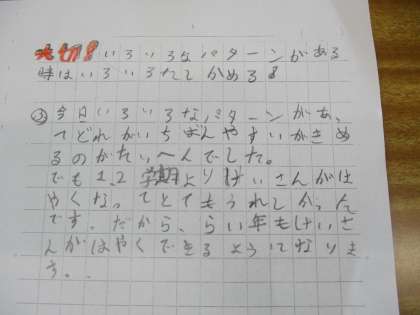 大切!いろいろなパターンがある
時はいろいろたしかめる!
③今日いろいろなパターンがあ、
てどれがいちばんやすいかきめ
るのがたいへんでした。
でも1、2学期よりけいさんがは
やくなってとてもうれしかった
です。だから、らい年もけいさ
んがはやくできるようになりま
す。